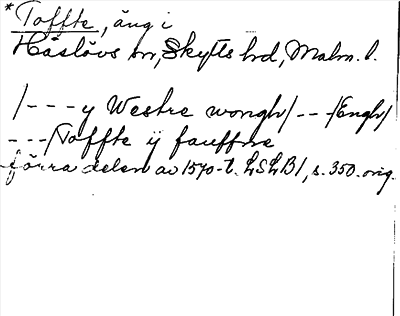 *Toffte, äng i
Håslövs sn, Skytts hd, Malm. l.
/---y Westre wongh/--/Engh/
---/Toffte ij fauffne
förra delen av 1570-t. LSLB1, s. 350. orig.